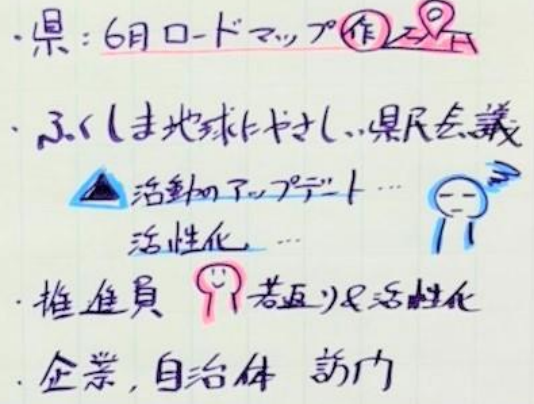 ・県：6月ロードマップ作
・ふくしま地球にやさしい県民会議
▲活動のアップデート…
活性化…
・推進員 若返り&活性化
・企業,自治体 訪問